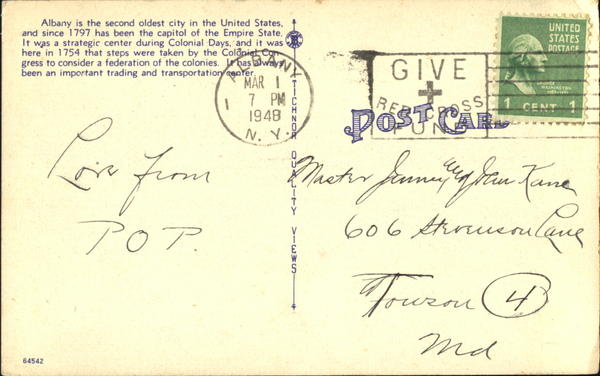 Albany is the second oldest city in the United States,
and since 1797 has been the capitol of the Empire State.
It was a strategic center during Colonial Days, and it was
here in 1754 that steps were taken by the Colonial Con-
gress to consider a federation of the colonies. It has always
been an important trading and transportation center.
ALBANY
MAR 1
7 PM
1948
N. Y.
1
GIVE
RED CROSS
FUND
UNITED
STATES
POSTAGE
GEORGE
WASHINGTON
1 CENT 1
POST CARD
TICHNOR QUALITY VIEWS
Love from
POP.
Master Jimmy John Kane
606 Stevenson Lane
Towson 4
Md
64542